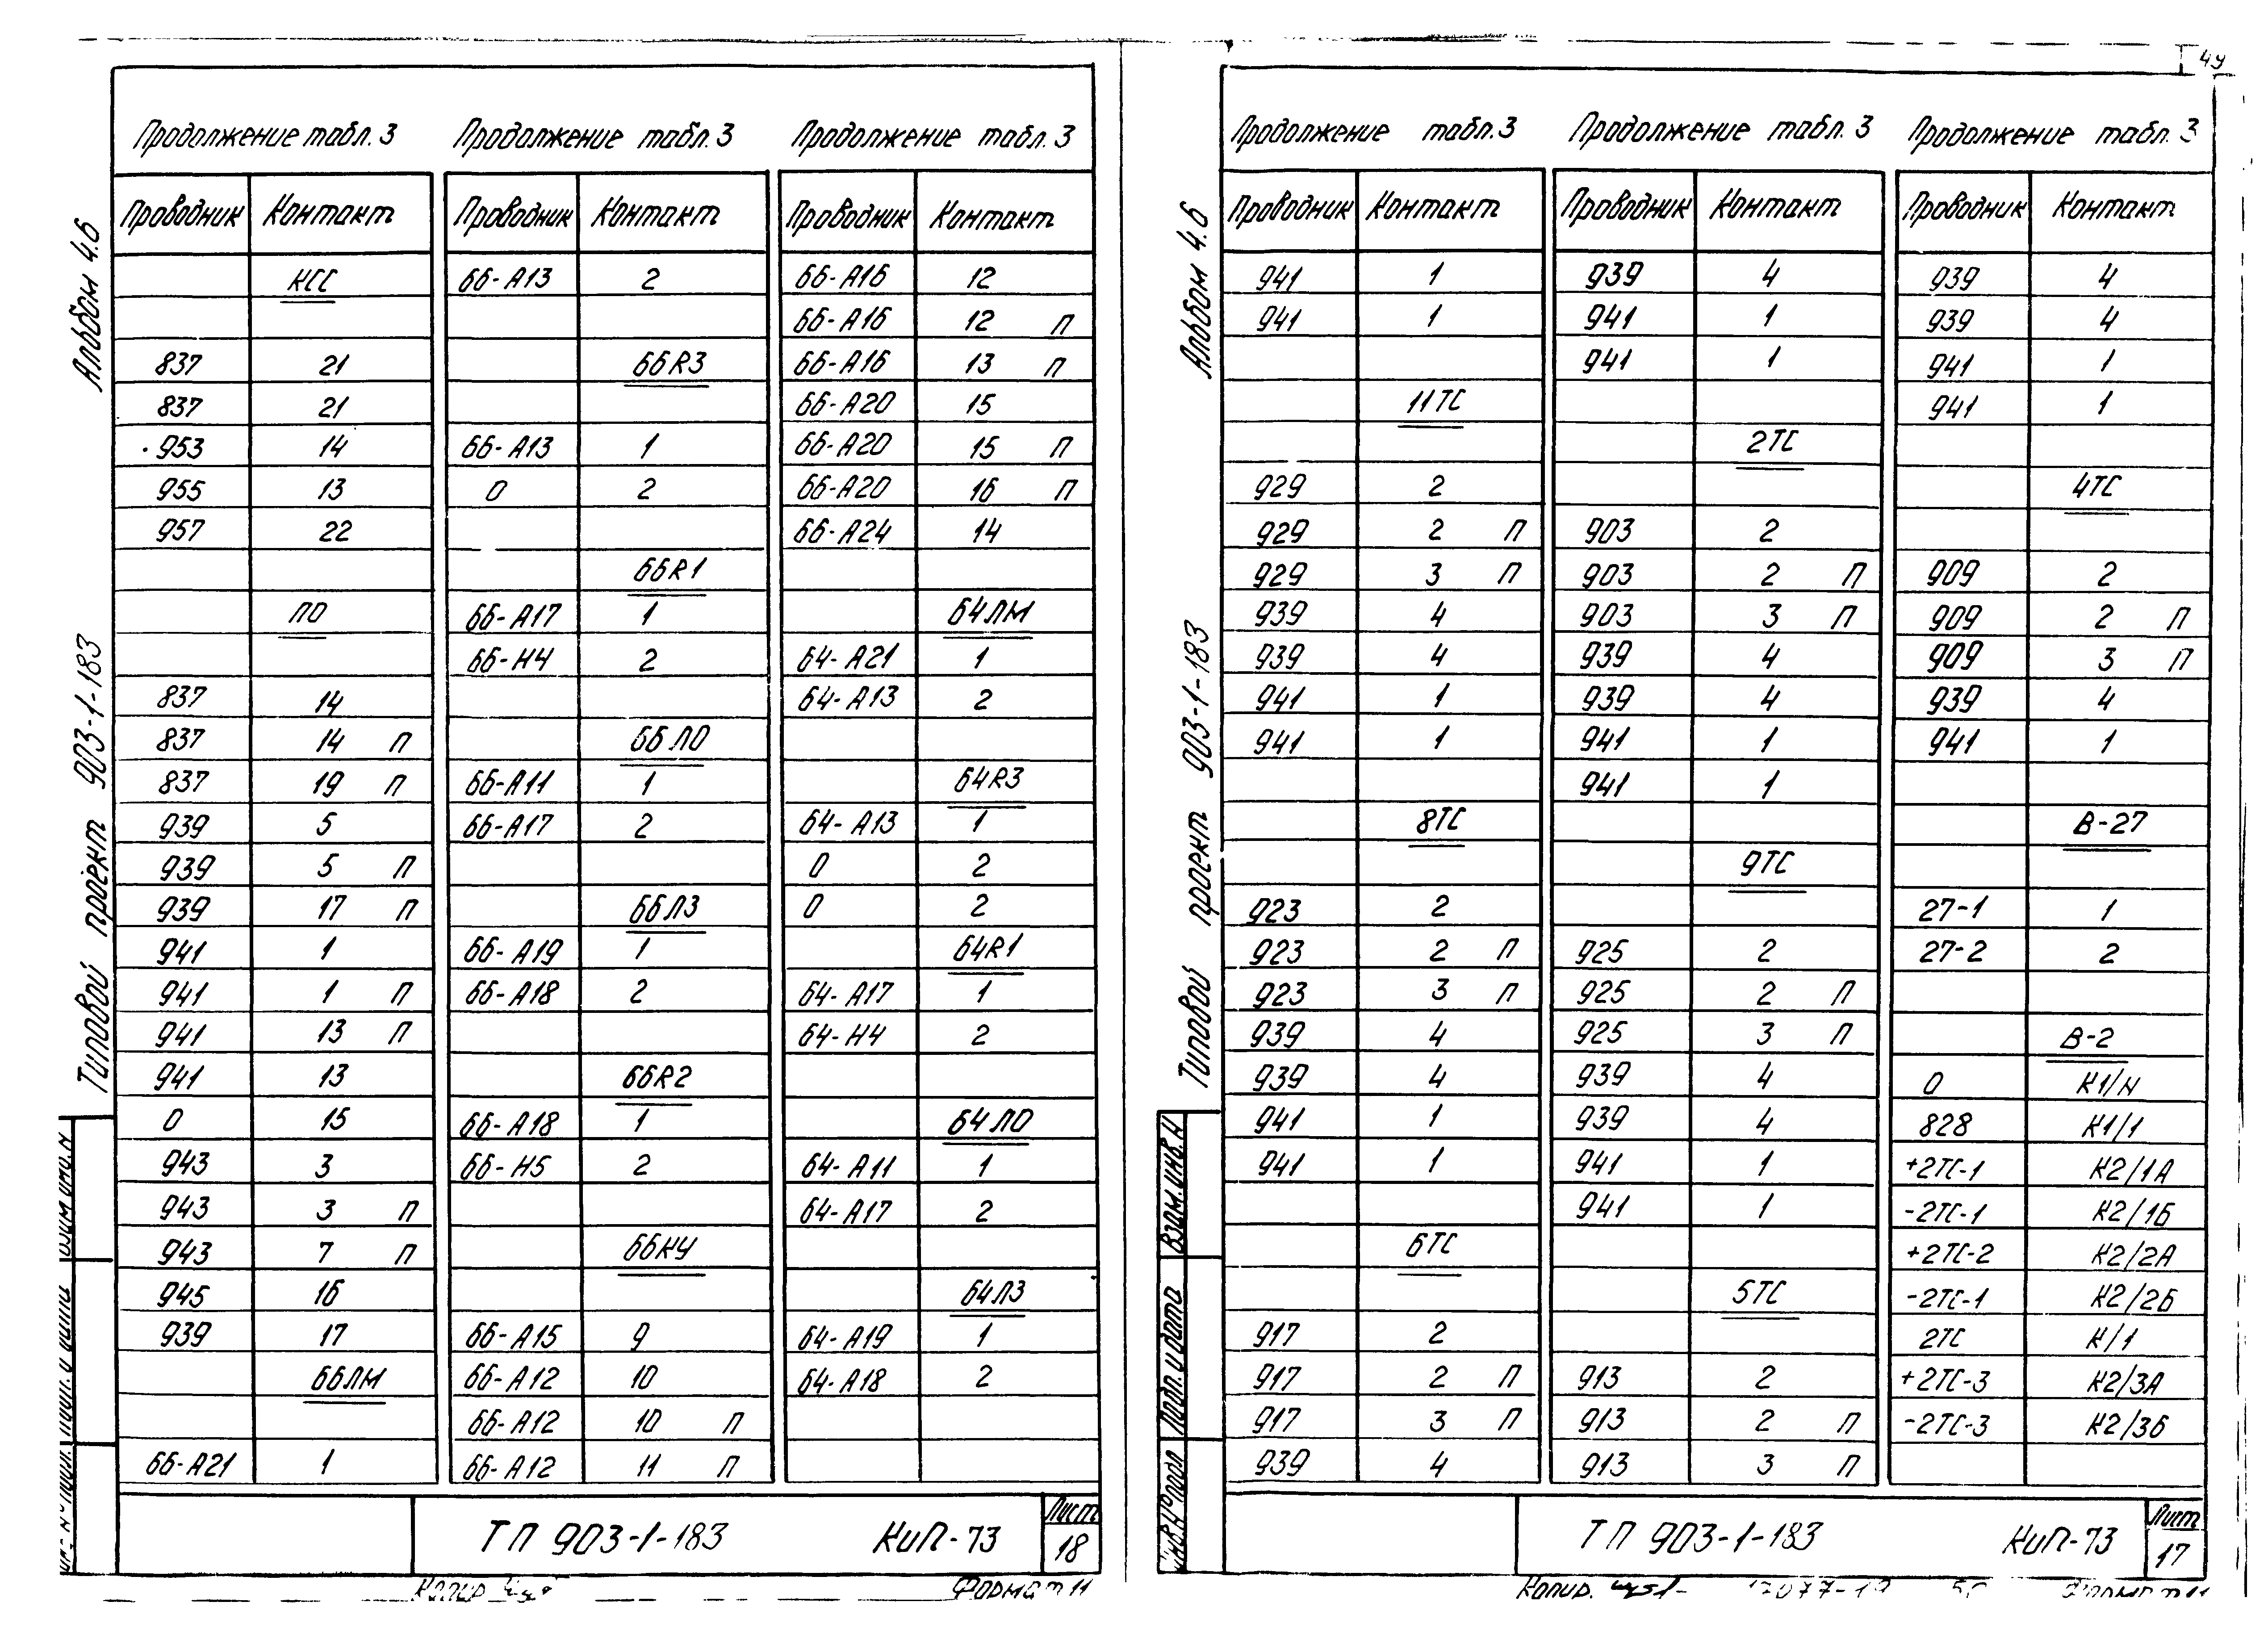 Альбом 4.6
Типовой проект 903-1-183
Продолжение табл. 3
Проводник Контакт
КСС
837 21
837 21
953 14
955 13
957 22
ПО
837 14
837 14 П
837 19 П
939 5
939 5 П
939 17 П
941 1
941 1 П
941 13 П
941 13
0 15
943 3
943 3 П
943 7 П
945 16
939 17
66ЛМ
66-А21 1
Продолжение табл. 3
Проводник Контакт
66-А13 2
66R3
66-А13 1
0 2
66R1
66-А17 1
66-Н4 2
66ЛО
66-А11 1
66-А17 2
66ЛЗ
66-А19 1
66-А18 2
66R2
66-А18 1
66-Н5 2
66КУ
66-А15 9
66-А12 10
66-А12 10 П
66-А12 11 П
Продолжение табл. 3
Проводник Контакт
66-А16 12
66-А16 12 П
66-А16 13 П
66-А20 15
66-А20 15 П
66-А20 16 П
66-А24 14
64ЛМ
64-А21 1
64-А13 2
64R3
64-А13 1
0 2
0 2
64R1
64-А17 1
64-Н4 2
64ЛО
64-А11 1
64-А17 2
64ЛЗ
64-А19 1
64-А18 2
ТП 903-1-183 КиП-73
Лист
18
Копир.
Формат 11
Альбом 4.6
Типовой проект 903-1-183
Взам. инв. N
Подп. и дата
Инв. N° подл
Продолжение табл. 3
Проводник Контакт
941 1
941 1
11ТС
929 2
929 2 П
929 3 П
939 4
939 4
941 1
941 1
8ТС
923 2
923 2 П
923 3 П
939 4
939 4
941 1
941 1
6ТС
917 2
917 2 П
917 3 П
939 4
Продолжение табл. 3
Проводник Контакт
939 4
941 1
941 1
2ТС
903 2
903 2 П
903 3 П
939 4
939 4
941 1
941 1
9ТС
925 2
925 2 П
925 3 П
939 4
939 4
941 1
941 1
5ТС
913 2
913 2 П
913 3 П
49
Продолжение табл. 3
Проводник Контакт
939 4
939 4
941 1
941 1
4ТС
909 2
909 2 П
909 3 П
939 4
941 1
В-27
27-1 1
27-2 2
В-2
0 К1/Н
828 К1/1
+2ТС-1 К2/1А
-2ТС-1 К2/1Б
+2ТС-2 К2/2А
-2ТС-1 К2/2Б
2ТС К/1
+2ТС-3 К2/3А
-2ТС-3 К2/3Б
ТП 903-1-183 КиП-73
Лист
17
Копир.
Формат 11